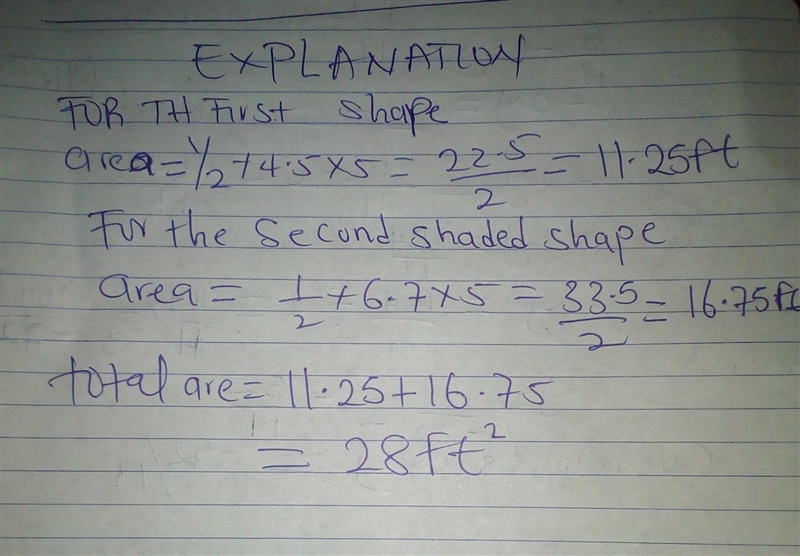 EXPLANATION
FOR TH First shape
area = 1/2 × 4.5 × 5 = 22.5/2 = 11.25ft
For the second shaded shape
area = 1/2 × 6.7 × 5 = 33.5/2 = 16.75ft
total are = 11.25 + 16.75
= 28ft²